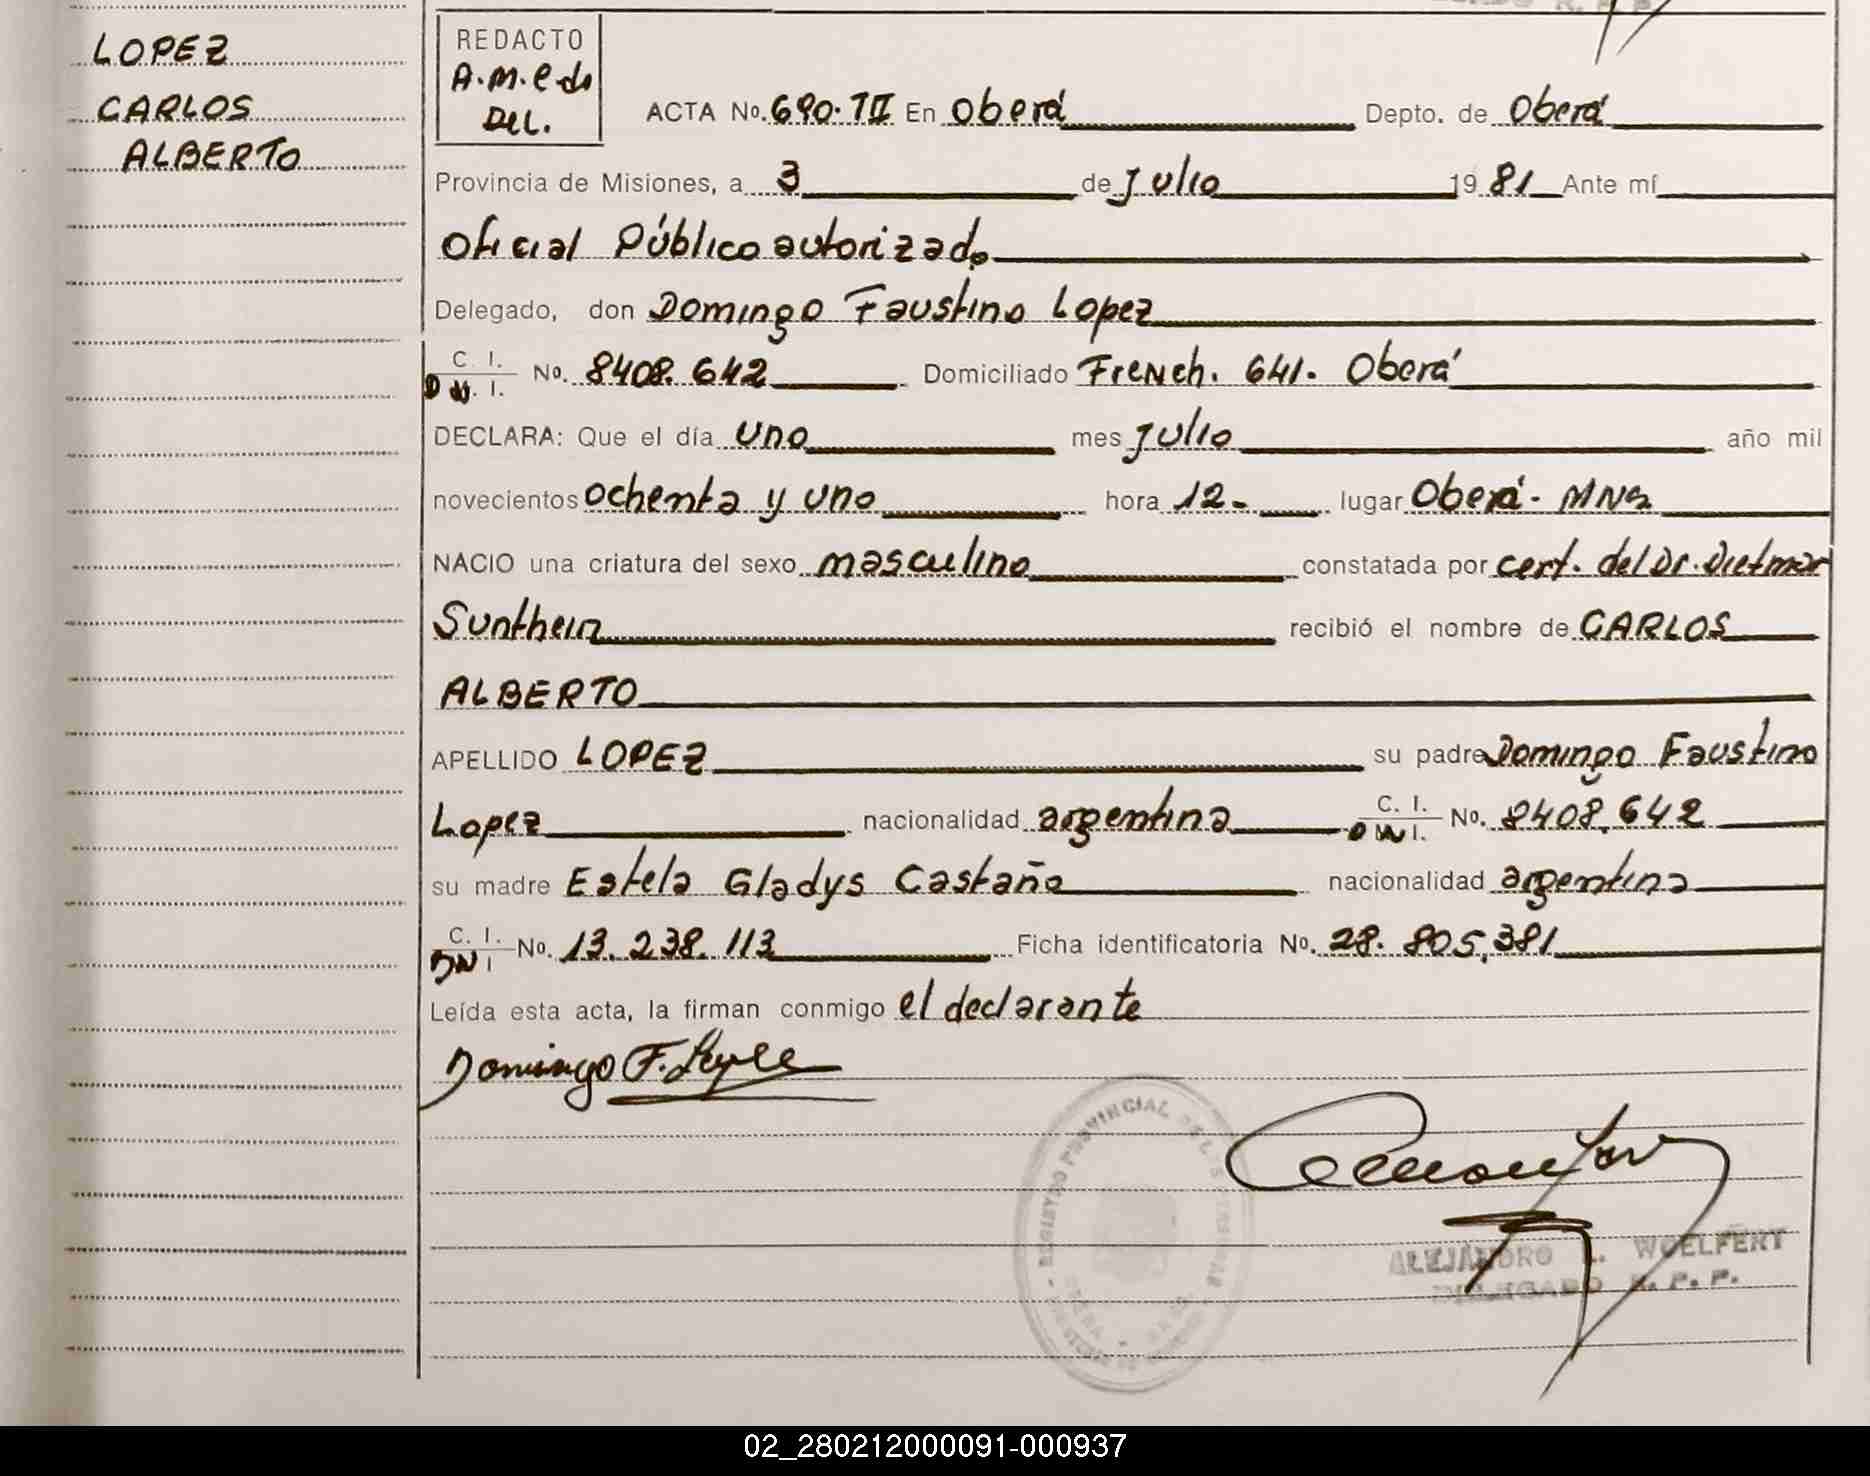 LOPEZ
CARLOS
ALBERTO
REDACTO
A.M.e do
Del.
ACTA No. 690.TII En Oberá Depto. de Oberá
Provincia de Misiones, a 3 de Julio 1981 Ante mí
Oficial Público autorizado
Delegado, don Domingo Faustino Lopez
C. I.
DN. I. No. 8408.642 Domiciliado French. 641. Oberá
DECLARA: Que el día uno mes Julio año mil
novecientos ochenta y uno hora 12- lugar Oberá- MNS
NACIO una criatura del sexo masculino constatada por cert. del Dr. Dietmar
Sunthein recibió el nombre de CARLOS
ALBERTO
APELLIDO LOPEZ su padre Domingo Faustino
Lopez nacionalidad argentina C. I.
DN I. No. 8408.642
su madre Estela Gladys Castaño nacionalidad argentina
C. I.
DNI No. 13.238.113 Ficha identificatoria No. 28.805.381
Leída esta acta, la firman conmigo el declarante
Domingo F.
REGISTRO PROVINCIAL DE LAS PERSONAS
ALEJANDRO L. WOELFERT
DELEGADO R. P. P.
02_280212000091-000937